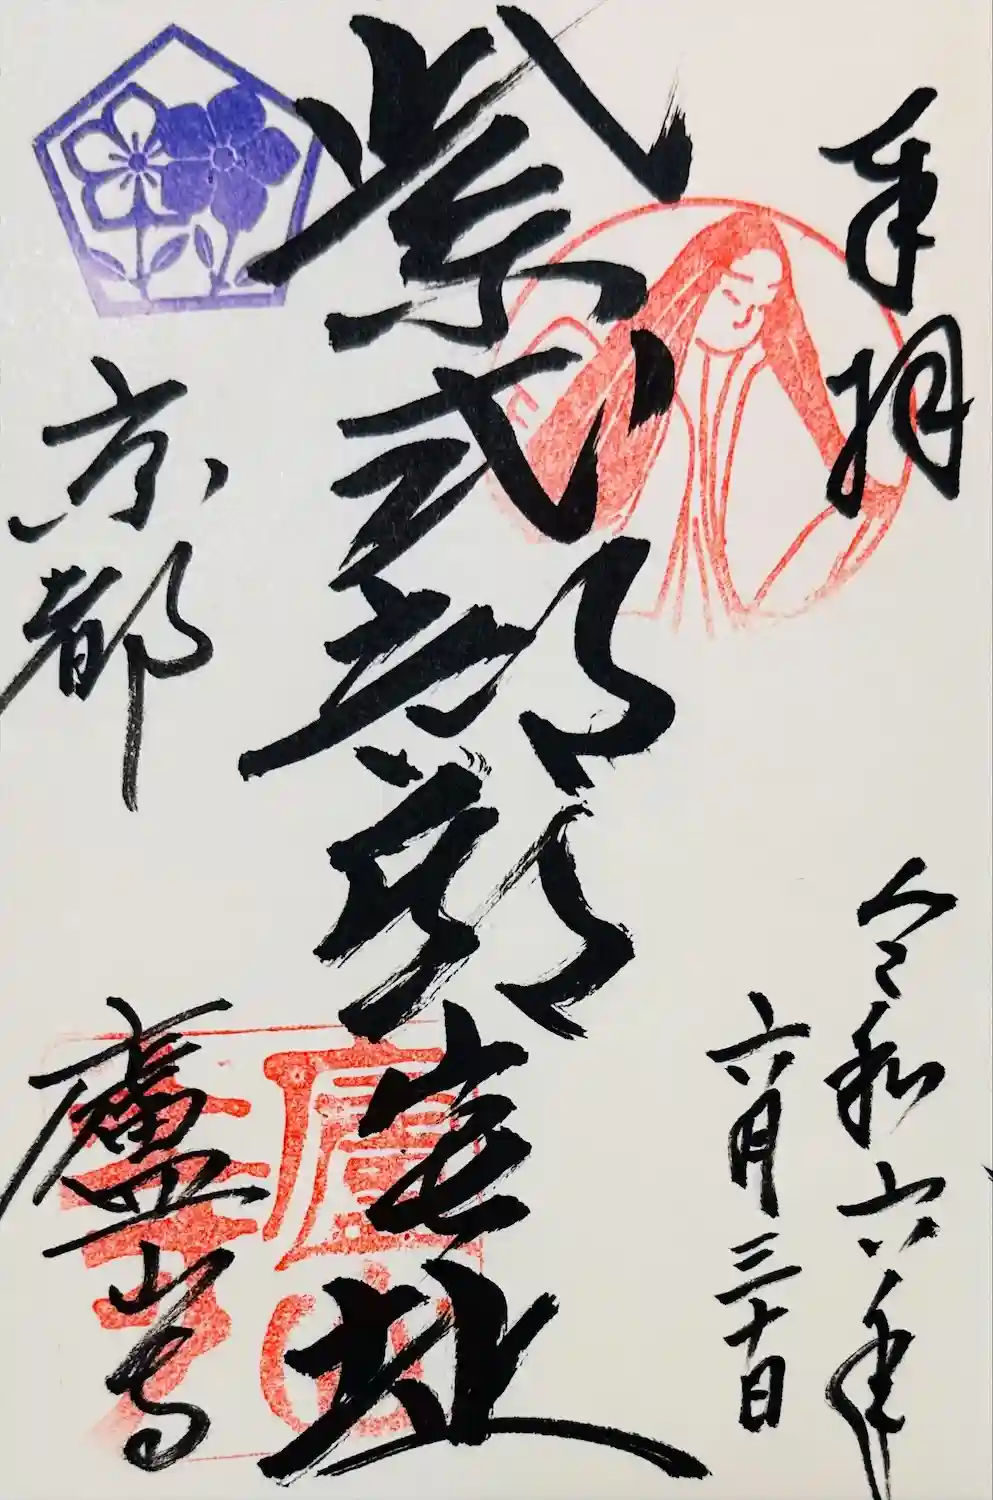 奉拝
令和六年
六月三十日
紫式部邸宅址
京都
廬山寺
廬山寺